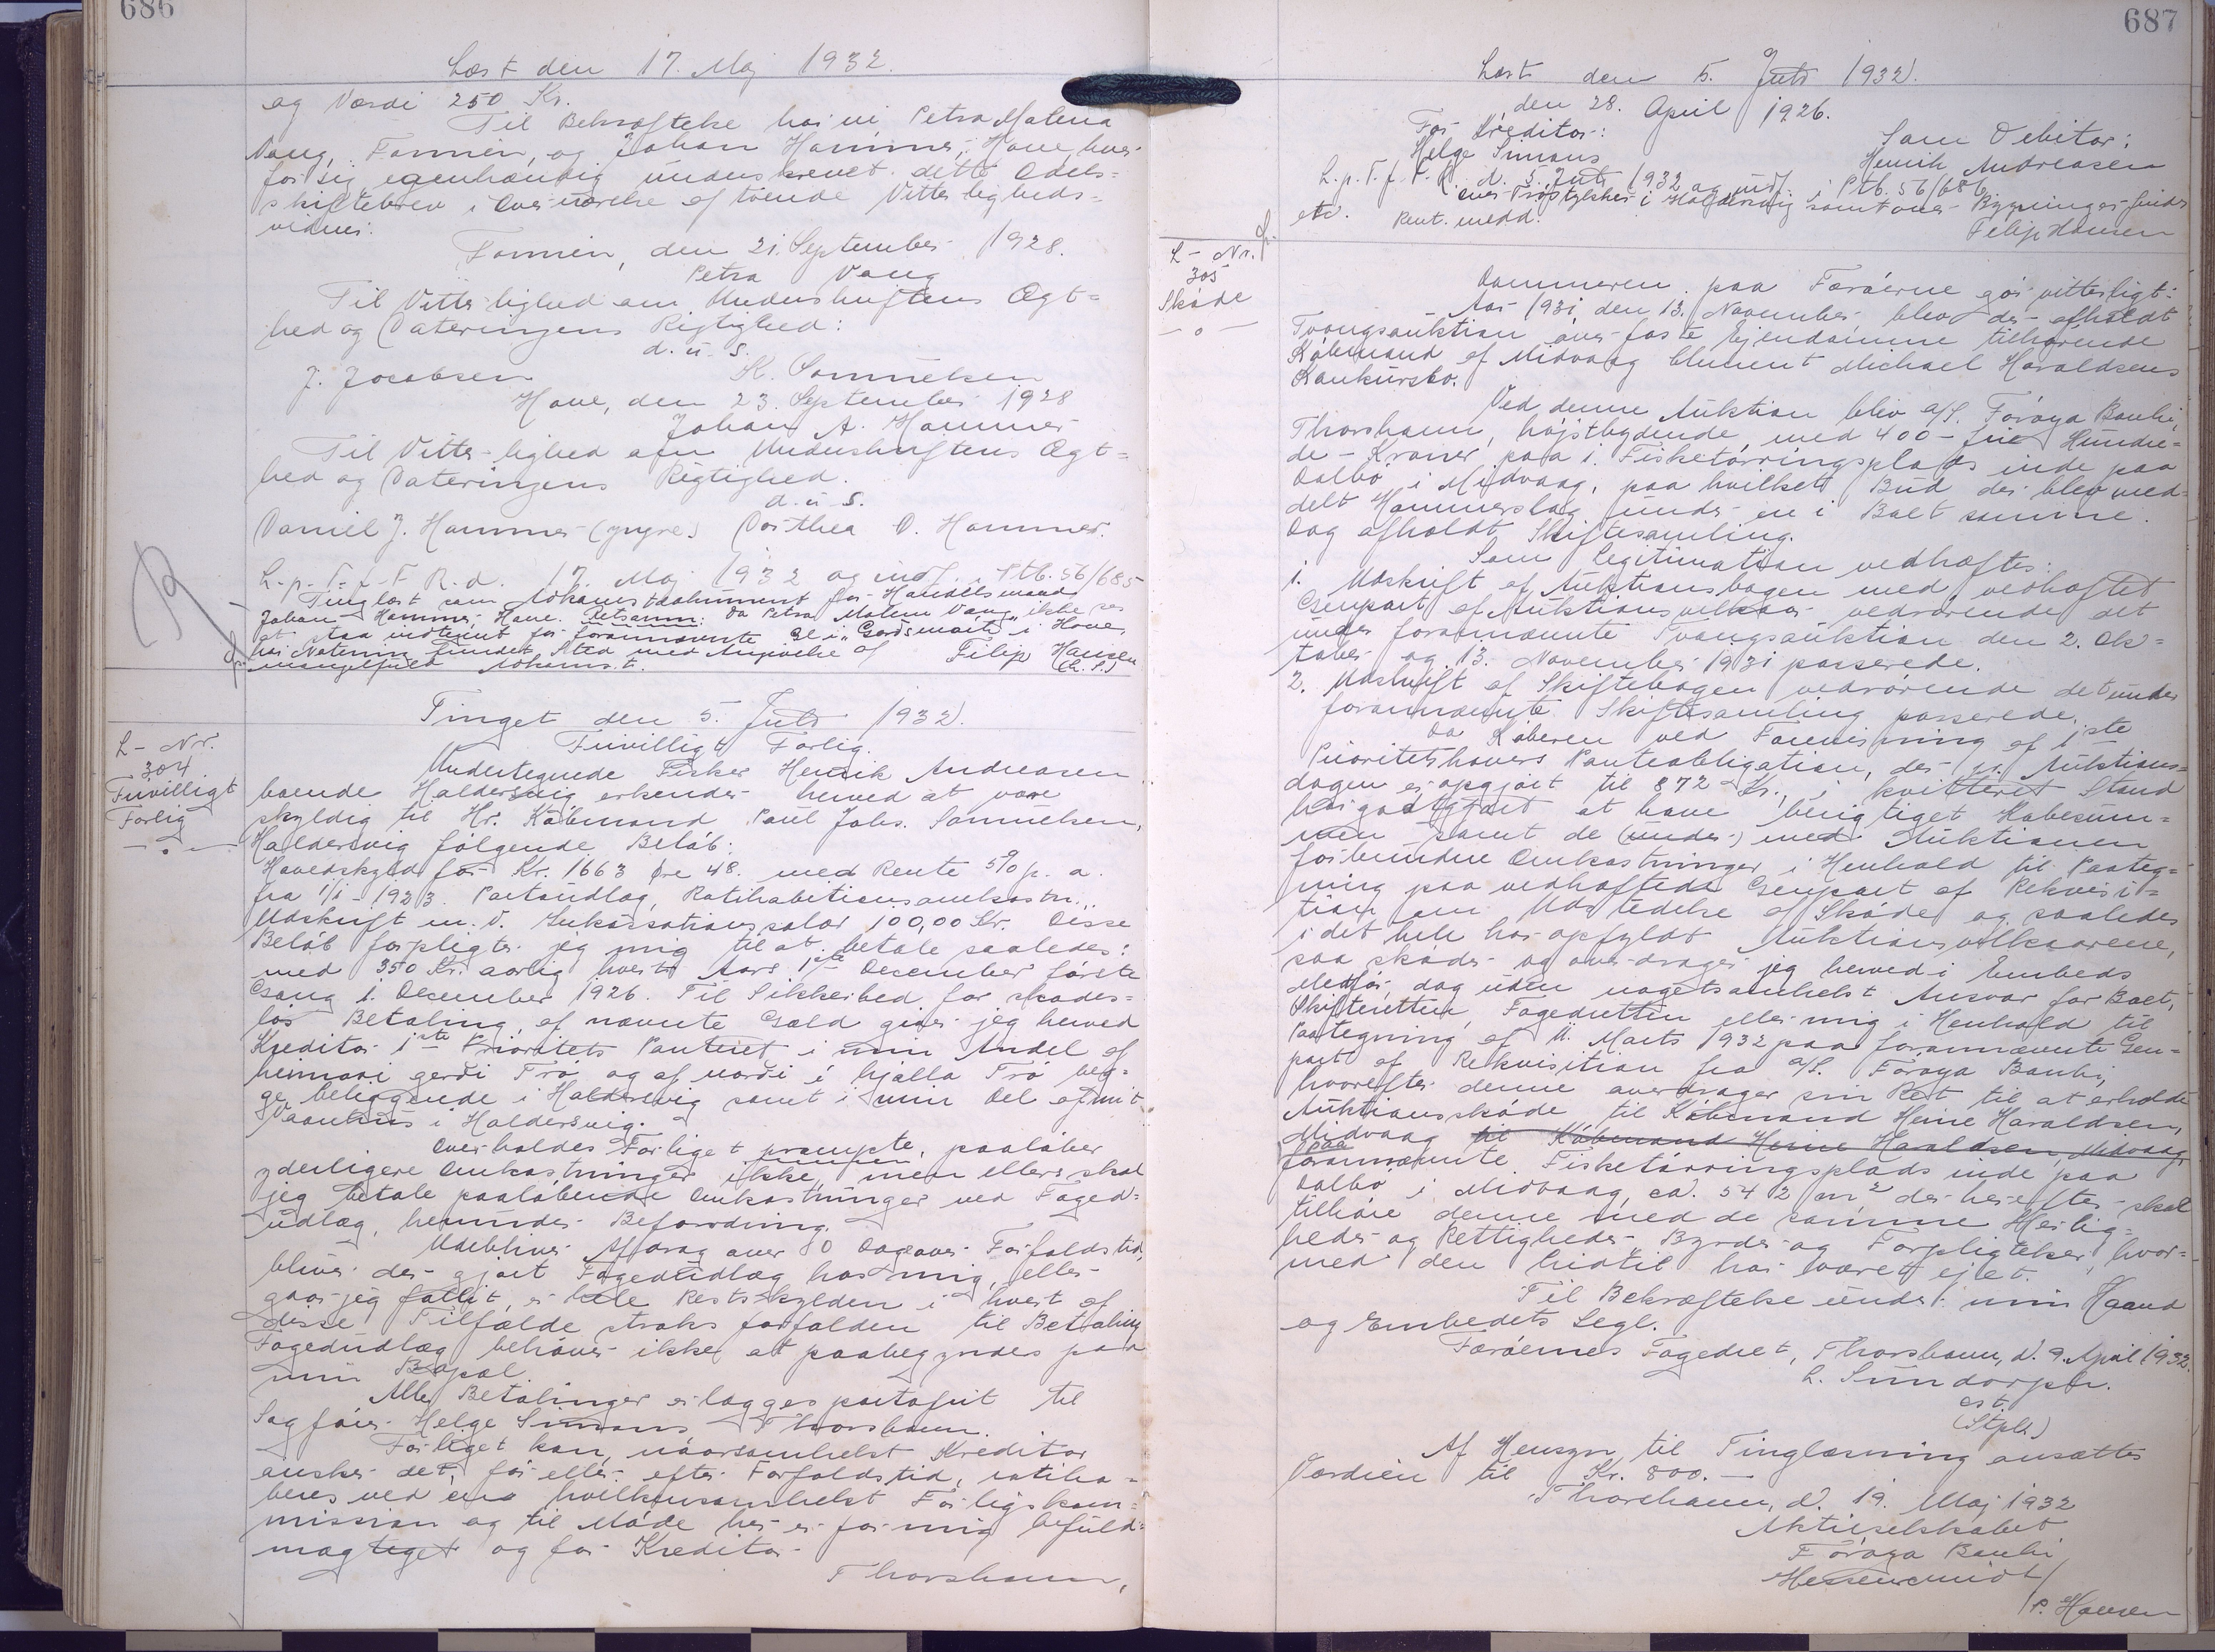 686
Læst den 17. Maj 1932.
og Værdi 250 Kr.
Til Bekræftelse har vi Petra Malena
Vang, Famien, og Johan Hammer, Hove, hver
for sig egenhændig underskrevet dette Odels=
skiftebrev i Overværelse af tvende Vitterligheds=
vidner.
Famien, den 21. September 1928.
Petra Vang
Til Vitterlighed om Underskriftens Ægt=
hed og Dateringens Rigtighed:
d. u. s.
J. Jacobsen K. Samuelsen
Hove, den 23. September 1928
Johan A. Hammer
Til Vitterlighed om Underskriftens Ægt=
hed og Dateringens Rigtighed.
d. u. s.
Daniel J. Hammer (yngre) Dorthea D. Hammer.
L. p. T. f. F. R. d. 17. Maj 1932 og indf. i Ptb. 56/685
Tinglæst som Adkomstdokument for Handelsmand
Johan Hammer, Hove. Retsanm: Da Petra Malene Vang ikke ses
at staa indtegnet for forannævnte Gl i "Gerdsmørk" i Hove,
har Notering fundet Sted med Angivelse af Filip Hansen
mangelfuld Adkomst. (L. S.)
Tinget den 5. Juli 1932.
L - Nr.
304
Frivilligt
Forlig
Frivilligt Forlig.
Undertegnede Fisker Henrik Andreasen
boende Haldersvig erkender herved at være
skyldig til Hr. Købmand Poul Johs. Samuelsen,
Haldersvig følgende Beløb:
Hovedskyld for Kr. 1663 Øre 48. med Rente 5% p. a.
fra 1/1 - 1923. Portoudlæg, Ratihabitionsomkostn.,
Udskrift m. v. Inkassationssalær 100,00 Kr. Disse
Beløb forpligter jeg mig til at betale saaledes:
med 350 Kr. aarlig hvert Aars 1ste December første
Gang 1. December 1926. Til Sikkerhed for skades=
løs Betaling af nævnte Gæld giver jeg herved
Kreditor 1ste Prioritets Panteret i min Andel af
heimari gerdi Trø og af nordi i hjalla Trø beg=
ge beliggende i Haldersvig samt i min Del af mit
Vaanhus i Haldersvig.
Overholdes Forliget prompte, paaløber
yderligere Omkostninger ikke, men ellers skal
jeg betale paaløbende Omkostninger ved Foged=
udlæg, herunder Befordring.
Udebliver Afdrag over 80 Dage over Forfaldstid,
bliver der gjort Fogedudlæg hos mig, eller
gaar jeg fallit, er hele Restskylden i hvert af
disse Tilfælde straks forfalden til Betaling
Fogedudlæg behøver ikke at paabegyndes paa
min Bopæl.
Alle Betalinger erlægges portofrit til
Sagfører Helge Simons, Thorshavn.
Forliget kan, naarsomhelst Kreditor
ønsker det, før eller efter Forfaldstid, ratiha=
beres ved en hvilkensomhelst Forligskom=
mission og til Møde her er for mig befuld=
mægtiget og for Kreditor
Thorshavn,
687
Læst den 5. Juli 1932.
den 28. April 1926.
For Kreditor: Som Debitor:
Helge Simons Henrik Andreasen
L. p. T. f. F. R. d. 5. Juli 1932 og indf. i Ptb. 56/686
over Trøstykker i Haldersvig samt over Bygninger findes
etc. Pant. medd. Filip Hansen
L - Nr.
305
Skøde
Dommeren paa Færøerne gør vitterligt:
Aar 1931, den 13. November blev der afholdt
Tvangsauktion over faste Ejendomme tilhørende
Købmand af Midvaag Clement Michael Haraldsens
Konkursbo.
Ved denne Auktion blev a/S. Føroya Banki,
Thorshavn, højstbydende med 400 - fire Hundre=
de - Kroner paa 1. Fisketørringsplads inde paa
Dalbø i Midvaag, paa hvilket Bud der blev med=
delt Hammerslag under en i Boet samme
Dag afholdt Skiftesamling.
Som Legitimation vedhæftes:
1. Udskrift af Auktionsbogen med vedhæftet
Genpart af Auktionsvilkaar vedrørende det
under forannævnte Tvangsauktion den 2. Ok=
tober og 13. November 1931 passerede.
2. Udskrift af Skiftebogen vedrørende det under
forannævnte Skiftesamling passerede.
Da Køberen ved Forevisning af 1ste
Prioritetshavers Panteobligation, der pr. Auktions=
dagen er opgjort til 872 Kr., i kvitteret Stand
har godtgjort at have berigtiget Købesum=
men samt de (under) med Auktionen
forbundne Omkostninger i Henhold til Paateg=
ning paa vedhæftede Genpart af Rekvisi=
tion om Udstedelse af Skøde og saaledes
i det hele har opfyldt Auktionsvilkaarene,
saa skøder og overdrager jeg herved i Embeds
Medfør, dog uden nogetsomhelst Ansvar for Boet,
Skifteretten, Fogedretten eller mig i Henhold til
Paategning af 11. Marts 1932 paa forannævnte Gen=
part af Rekvisition fra a/S. Føroya Banki,
hvorefter denne overdrager sin Ret til at erholde
Auktionsskøde til Købmand Heine Haraldsen,
Midvaag til Købmand Heine Haraldsen, Midvaag
paa
forannævnte Fisketørringsplads inde paa
Dalbø i Midvaag, ca. 542 m² der herefter skal
tilhøre denne med de samme Herlig=
heder og Rettigheder, Byrder og Forpligtelser, hvor=
med den hidtil har været ejet.
Til Bekræftelse under min Haand
og Embedets Segl.
Færøernes Fogedret, Thorshavn, d. 9. April 1932.
L. Sundorph.
cst.
(Stpl.)
Af Hensyn til Tinglæsning ansættes
Værdien til Kr. 800. -
Thorshavn, d. 19. Maj 1932
Aktieselskabet
Føroya Banki
/P. Hansen